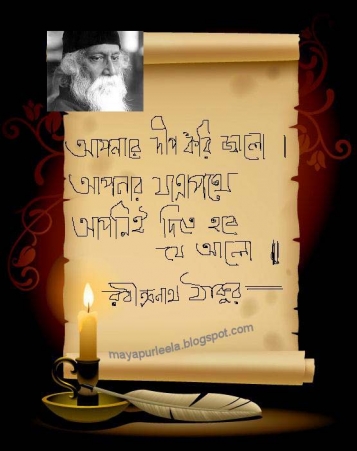 আপনার দীপ করি জ্বালো ।
আপনার যাত্রাপথে
আপনিই দিতে হবে
যে আলো ॥
রবীন্দ্রনাথ ঠাকুর
mayapurleela.blogspot.com